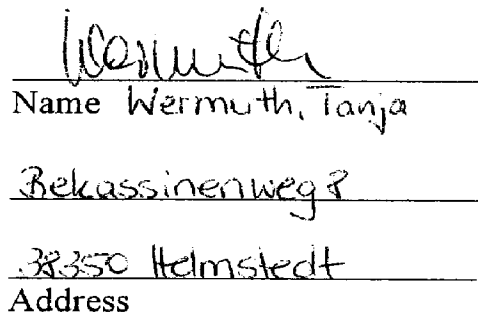 Wermuth
Name Wermuth, Tanja
Bekassinenweg 8
38350 Helmstedt
Address